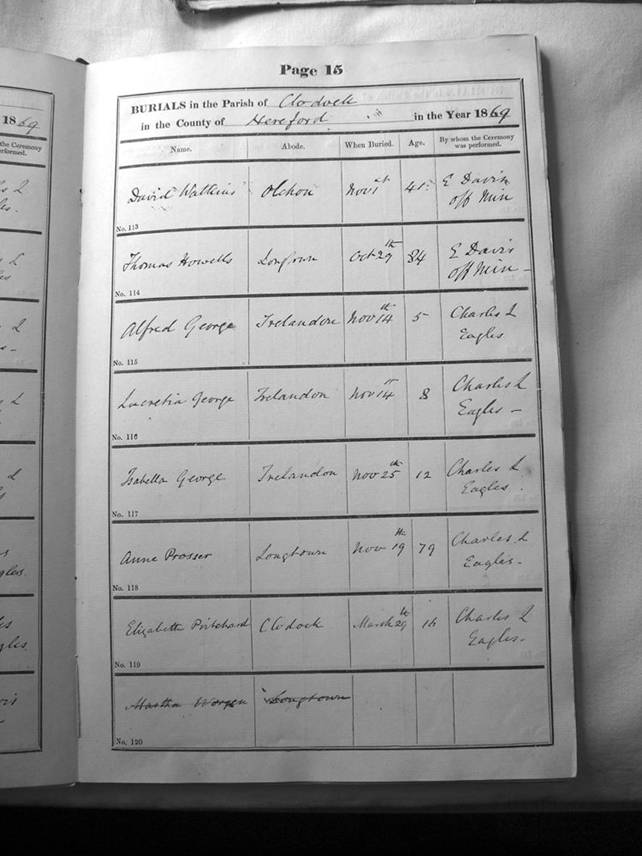 Page 15
BURIALS in the Parish of Clodock
in the County of Hereford in the Year 1869
Name. Abode. When Buried. Age. By whom the Ceremony was performed.
David Watkins Olchon Novr 1st 41 E Davis
off Min
No. 113
Thomas Howells Longtown Oct 29th 84 E Davis
off Min –
No. 114
Alfred George Trelandon Nov 14th 5 Charles L
Eagles
No. 115
Lucretia George Trelandon Nov 14th 8 Charles L
Eagles –
No. 116
Isabella George Trelandon Nov 25th 12 Charles L
Eagles.
No. 117
Anne Prosser Longtown Nov 19th 79 Charles L
Eagles –
No. 118
Elizabeth Pritchard Clodock March 29th 16 Charles L
Eagles –
No. 119
Martha Worgen Longtown
No. 120
1869
the Ceremony
performed.